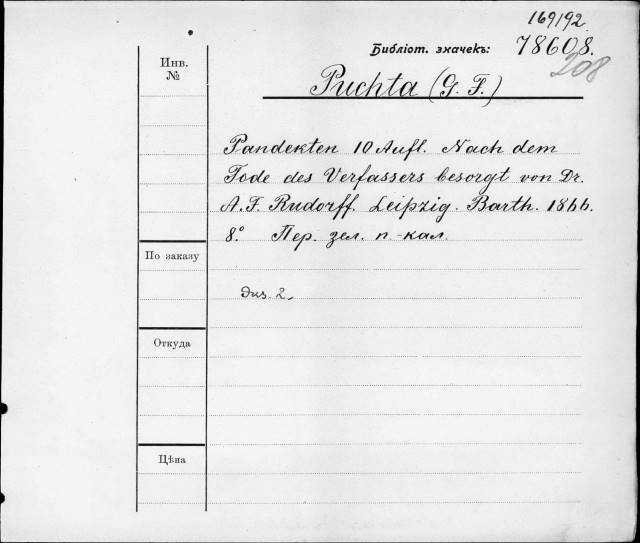 169192
Библіот. значекъ: 78608.
208
Инв. №
Puchta (G. F.)
Pandekten 10 Aufl. Nach dem
Tode des Verfassers besorgt von Dr.
A. F. Rudorff. Leipzig. Barth. 1866.
8.° Пер. зел. п.-кал.
По заказу
Экз. 2.
Откуда
Цѣна